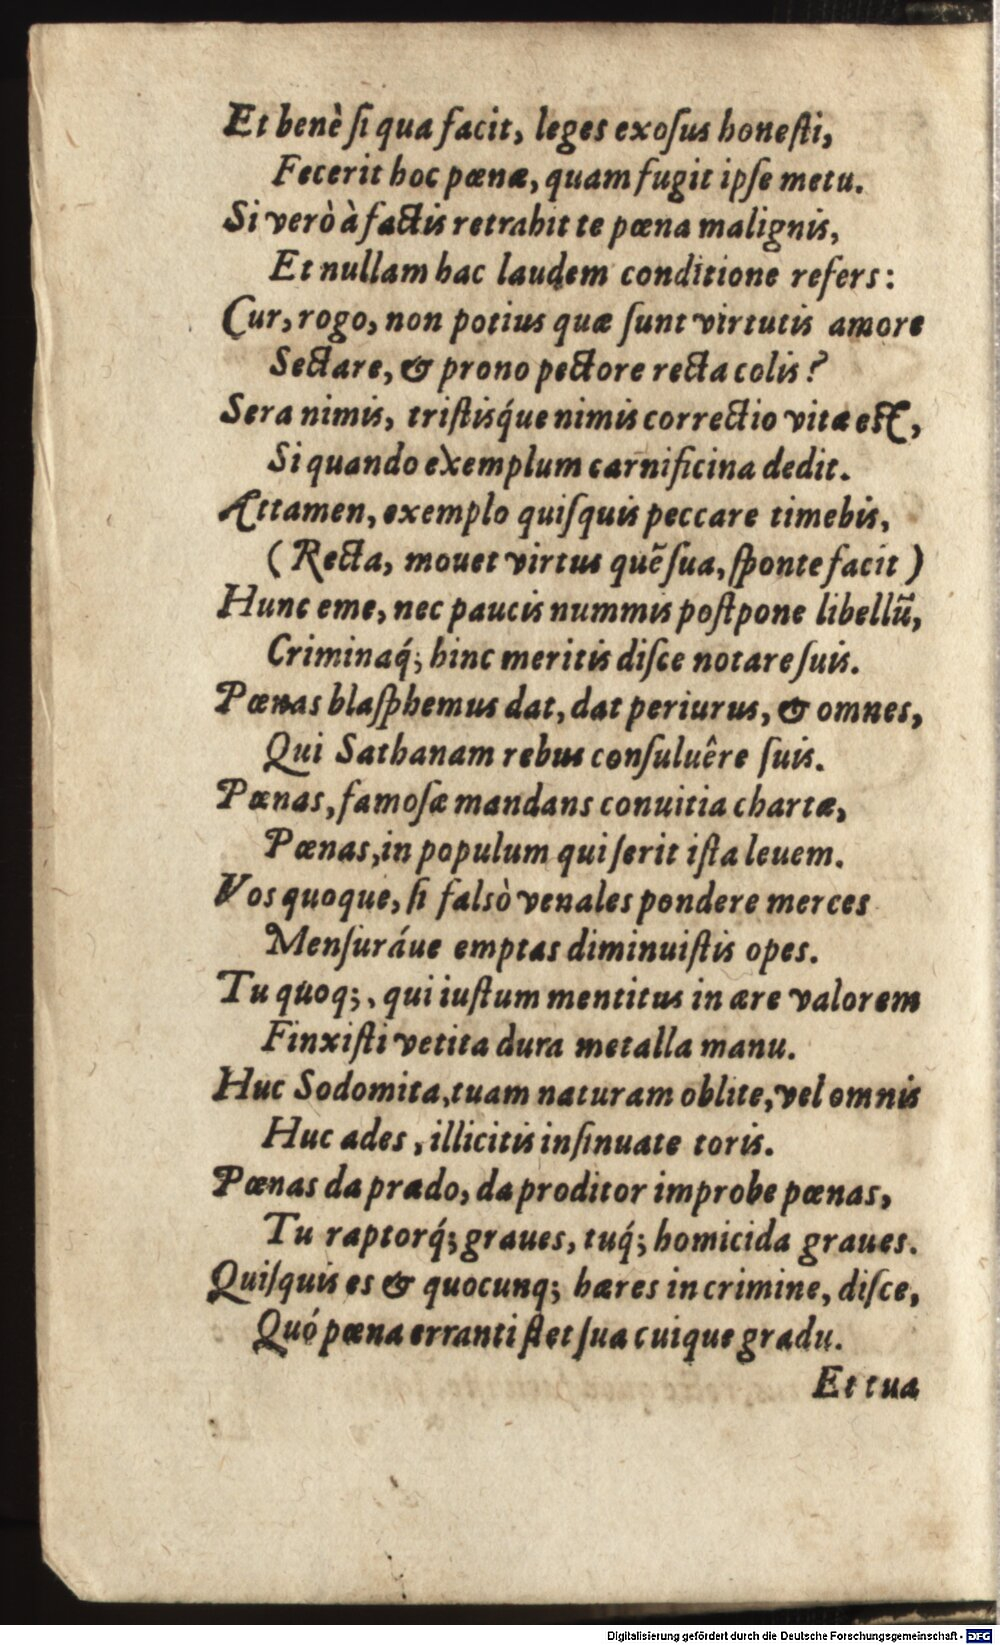 Et benè ſi qua facit, leges exoſus honeſti,
Fecerit hoc pœnæ, quam fugit ipſe metu.
Si verò à factis retrahit te pœna malignis,
Et nullam hac laudem conditione refers:
Cur, rogo, non potius quæ ſunt virtutis amore
Sectare, & prono pectore recta colis?
Sera nimis, triſtisq́ue nimis correctio vitæ eſt,
Si quando exemplum carnificina dedit.
Attamen, exemplo quiſquis peccare timebis,
(Recta, mouet virtus quẽ ſua, ſponte facit)
Hunc eme, nec paucis nummis poſtpone libellũ,
Criminaq́; hinc meritis diſce notare ſuis.
Pœnas blaſphemus dat, dat periurus, & omnes,
Qui Sathanam rebus conſuluêre ſuis.
Pœnas, famoſæ mandans conuitia chartæ,
Pœnas, in populum qui ſerit iſta leuem.
Vos quoque, ſi falsò venales pondere merces
Menſuráue emptas diminuiſtis opes.
Tu quoq;, qui iuſtum mentitus in ære valorem
Finxiſti vetita dura metalla manu.
Huc Sodomita, tuam naturam oblite, vel omnis
Huc ades, illicitis inſinuate toris.
Pœnas da prædo, da proditor improbe pœnas,
Tu raptorq́; graues, tuq́; homicida graues.
Quiſquis es & quocunq; hæres in crimine, diſce,
Quó pœna erranti ſtet ſua cuique gradu.
Et tua
Digitalisierung gefördert durch die Deutsche Forschungsgemeinschaft - DFG